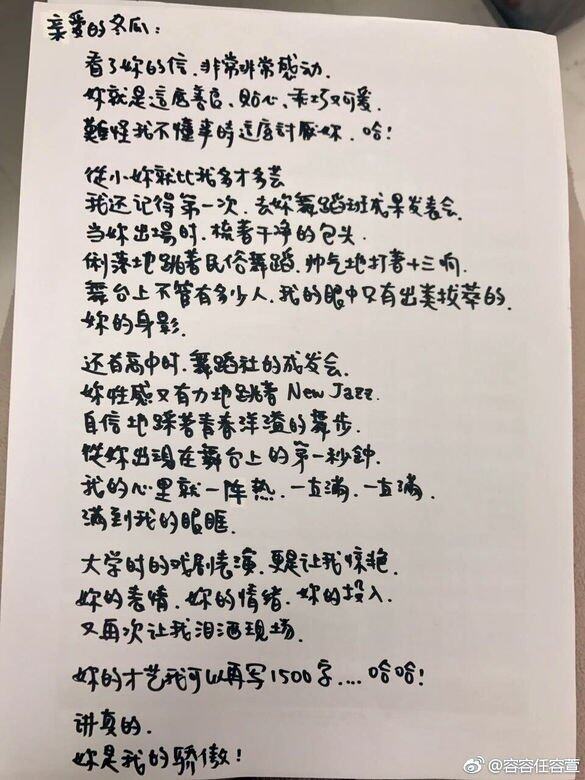 亲爱的冬瓜：
看了妳的信.非常非常感动.
妳就是這麼善良、贴心、乖巧又可愛.
難怪我不懂事時這麼討厭妳.哈!
從小妳就比我多才多芸
我还記得第一次.去妳舞蹈班成果发表会.
当妳出場时.梳著干净的包头.
俐落地跳著民俗舞蹈.帅气地打著十三响.
舞台上不管有多少人.我的眼中只有出类拔萃的.
妳的身影.
还有高中时.舞蹈社的成发会.
妳性感又有力地跳著 New Jazz.
自信地踩著青春洋溢的舞步.
從妳出現在舞台上的第一秒鐘.
我的心里就一阵热.一直满.一直满.
满到我的眼眶.
大学时的戏剧表演.更是让我惊艳.
妳的表情.妳的情绪.妳的投入.
又再次让我泪洒现场.
妳的才艺我可以再写1500字....哈哈!
讲真的.
妳是我的驕傲!
@容容任容萱